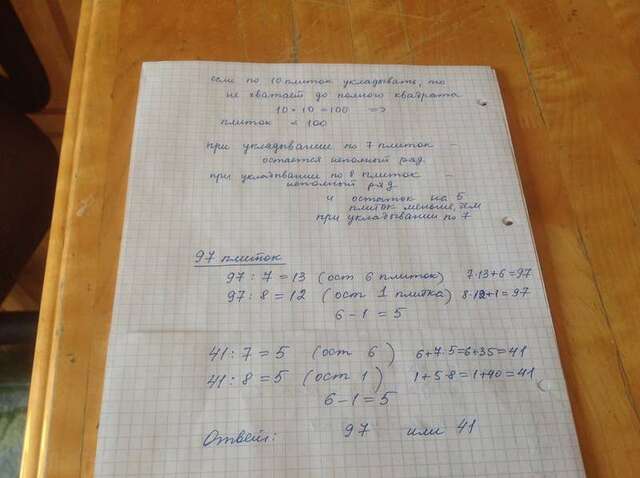 если по 10 плиток укладывать, то
не хватает до полного квадрата
10 × 10 = 100 =>
плиток < 100
при укладывании по 7 плиток -
остается неполный ряд
при укладывании по 8 плиток -
неполный ряд
и остаток на 5
плиток меньше, чем
при укладывании по 7
97 плиток
97 : 7 = 13 (ост 6 плиток) 7·13+6=97
97 : 8 = 12 (ост 1 плитка) 8·12+1=97
6 - 1 = 5
41 : 7 = 5 (ост 6) 6+7·5=6+35=41
41 : 8 = 5 (ост 1) 1+5·8=1+40=41
6 - 1 = 5
Ответ: 97 или 41